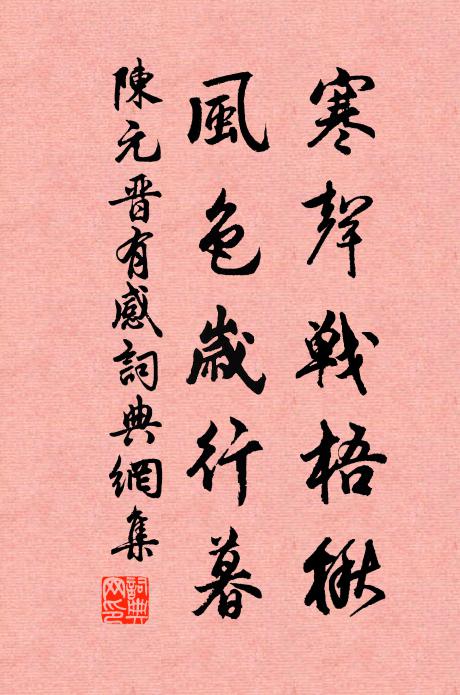 寒聲戰梧楸
風色歲行暮
陳元晋有感詞典網集
詞典網印